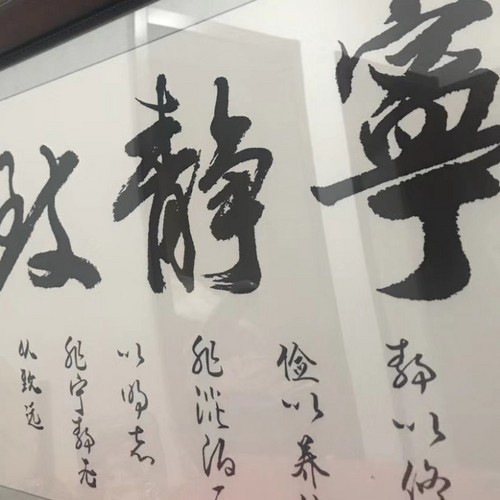 寧静致
静以修
俭以养
非淡泊
以明志
非宁静无
以致远